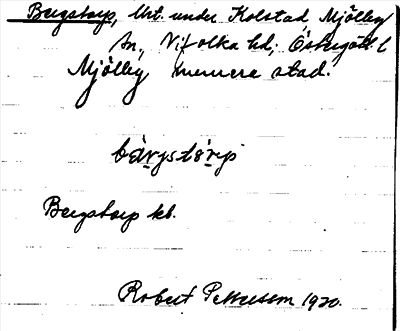 Bergstorp, Urt. under Kolstad, Mjölby
sn, Vifolka hd, Östergötl. l
Mjölby numera stad.
bärystórp
Bergstorp kb.
Robert Pettersson 1920.